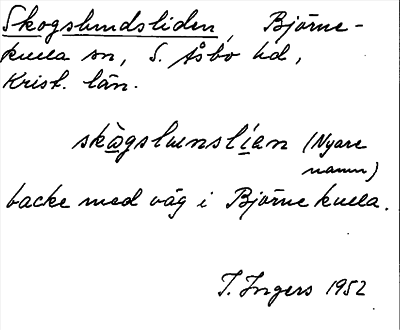 Skogslundsliden, Björne-
kulla sn, S. Åsbo hd,
Krist. län.
skògslunslían (Nyare
namn)
backe med väg i Björnekulla.
I. Ingers 1952